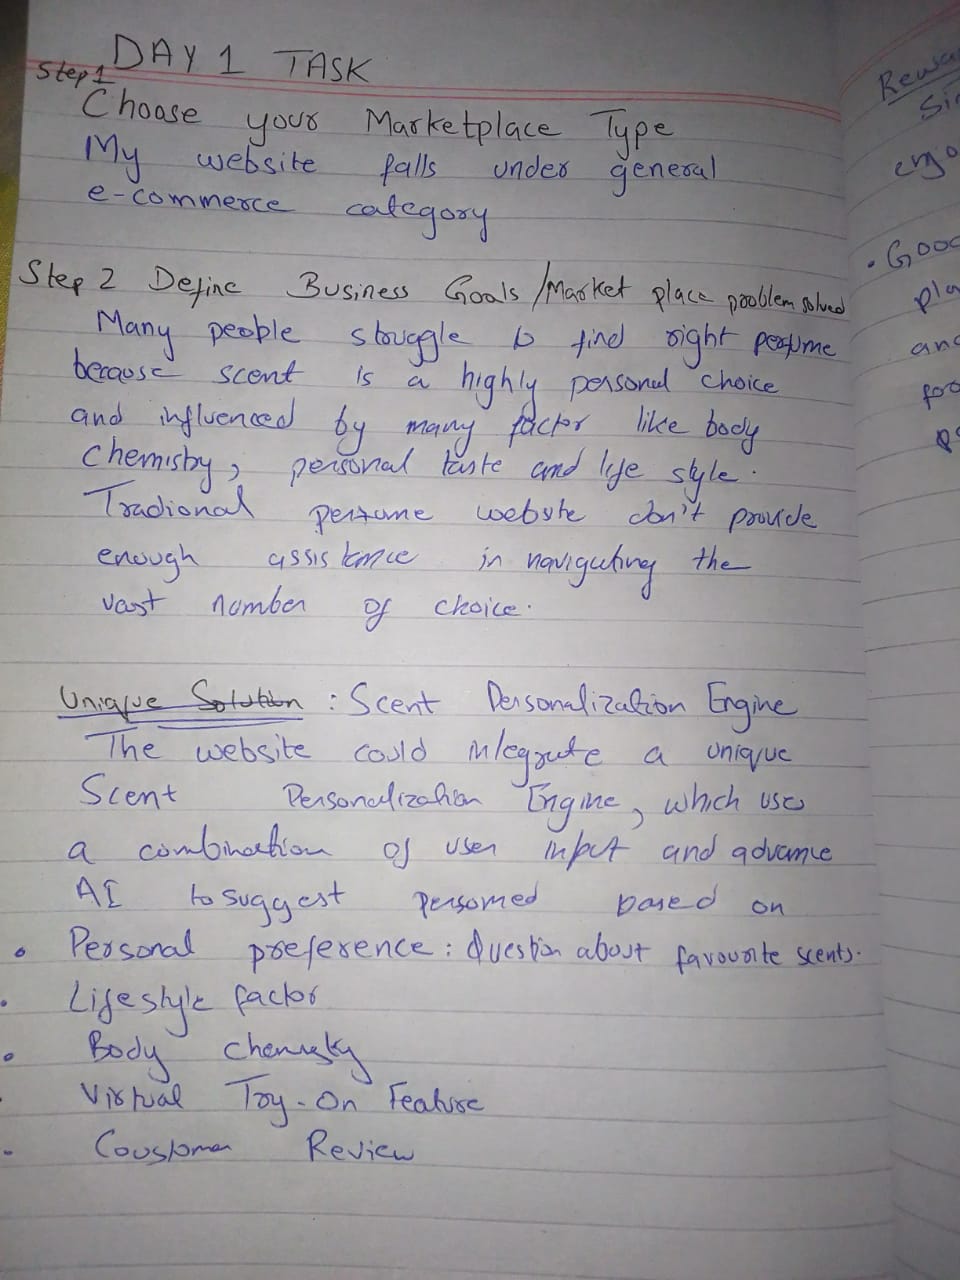 DAY 1 TASK
Step 1
Choose your Marketplace Type
My website falls under general
e-commerce category
Step 2 Define Business Goals/Market place problem solved
Many people struggle to find right perfume
because scent is a highly personal choice
and influenced by many factor like body
Chemistry, personal taste and life style.
Tradional perfume website don't provide
enough assistance in navigating the
vast number of choice.
Unique Solution : Scent Personalization Engine
The website could integrate a unique
Scent Personalization Engine, which uses
a combination of user input and advance
AI to suggest based on
• Personal preference: Question about favourite scents.
• Lifestyle factor
• Body chemistry
• Virtual Try-On Feature
• Coustomer Review
Rewa
Si
ergo
• Good
pla
and
foo